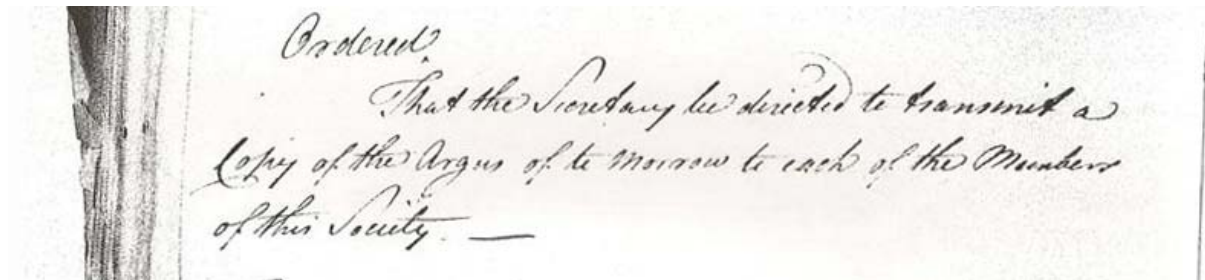 Ordered.
That the Secretary be directed to transmit a
Copy of the Argus of to Morrow to each of the Members
of this Society. —